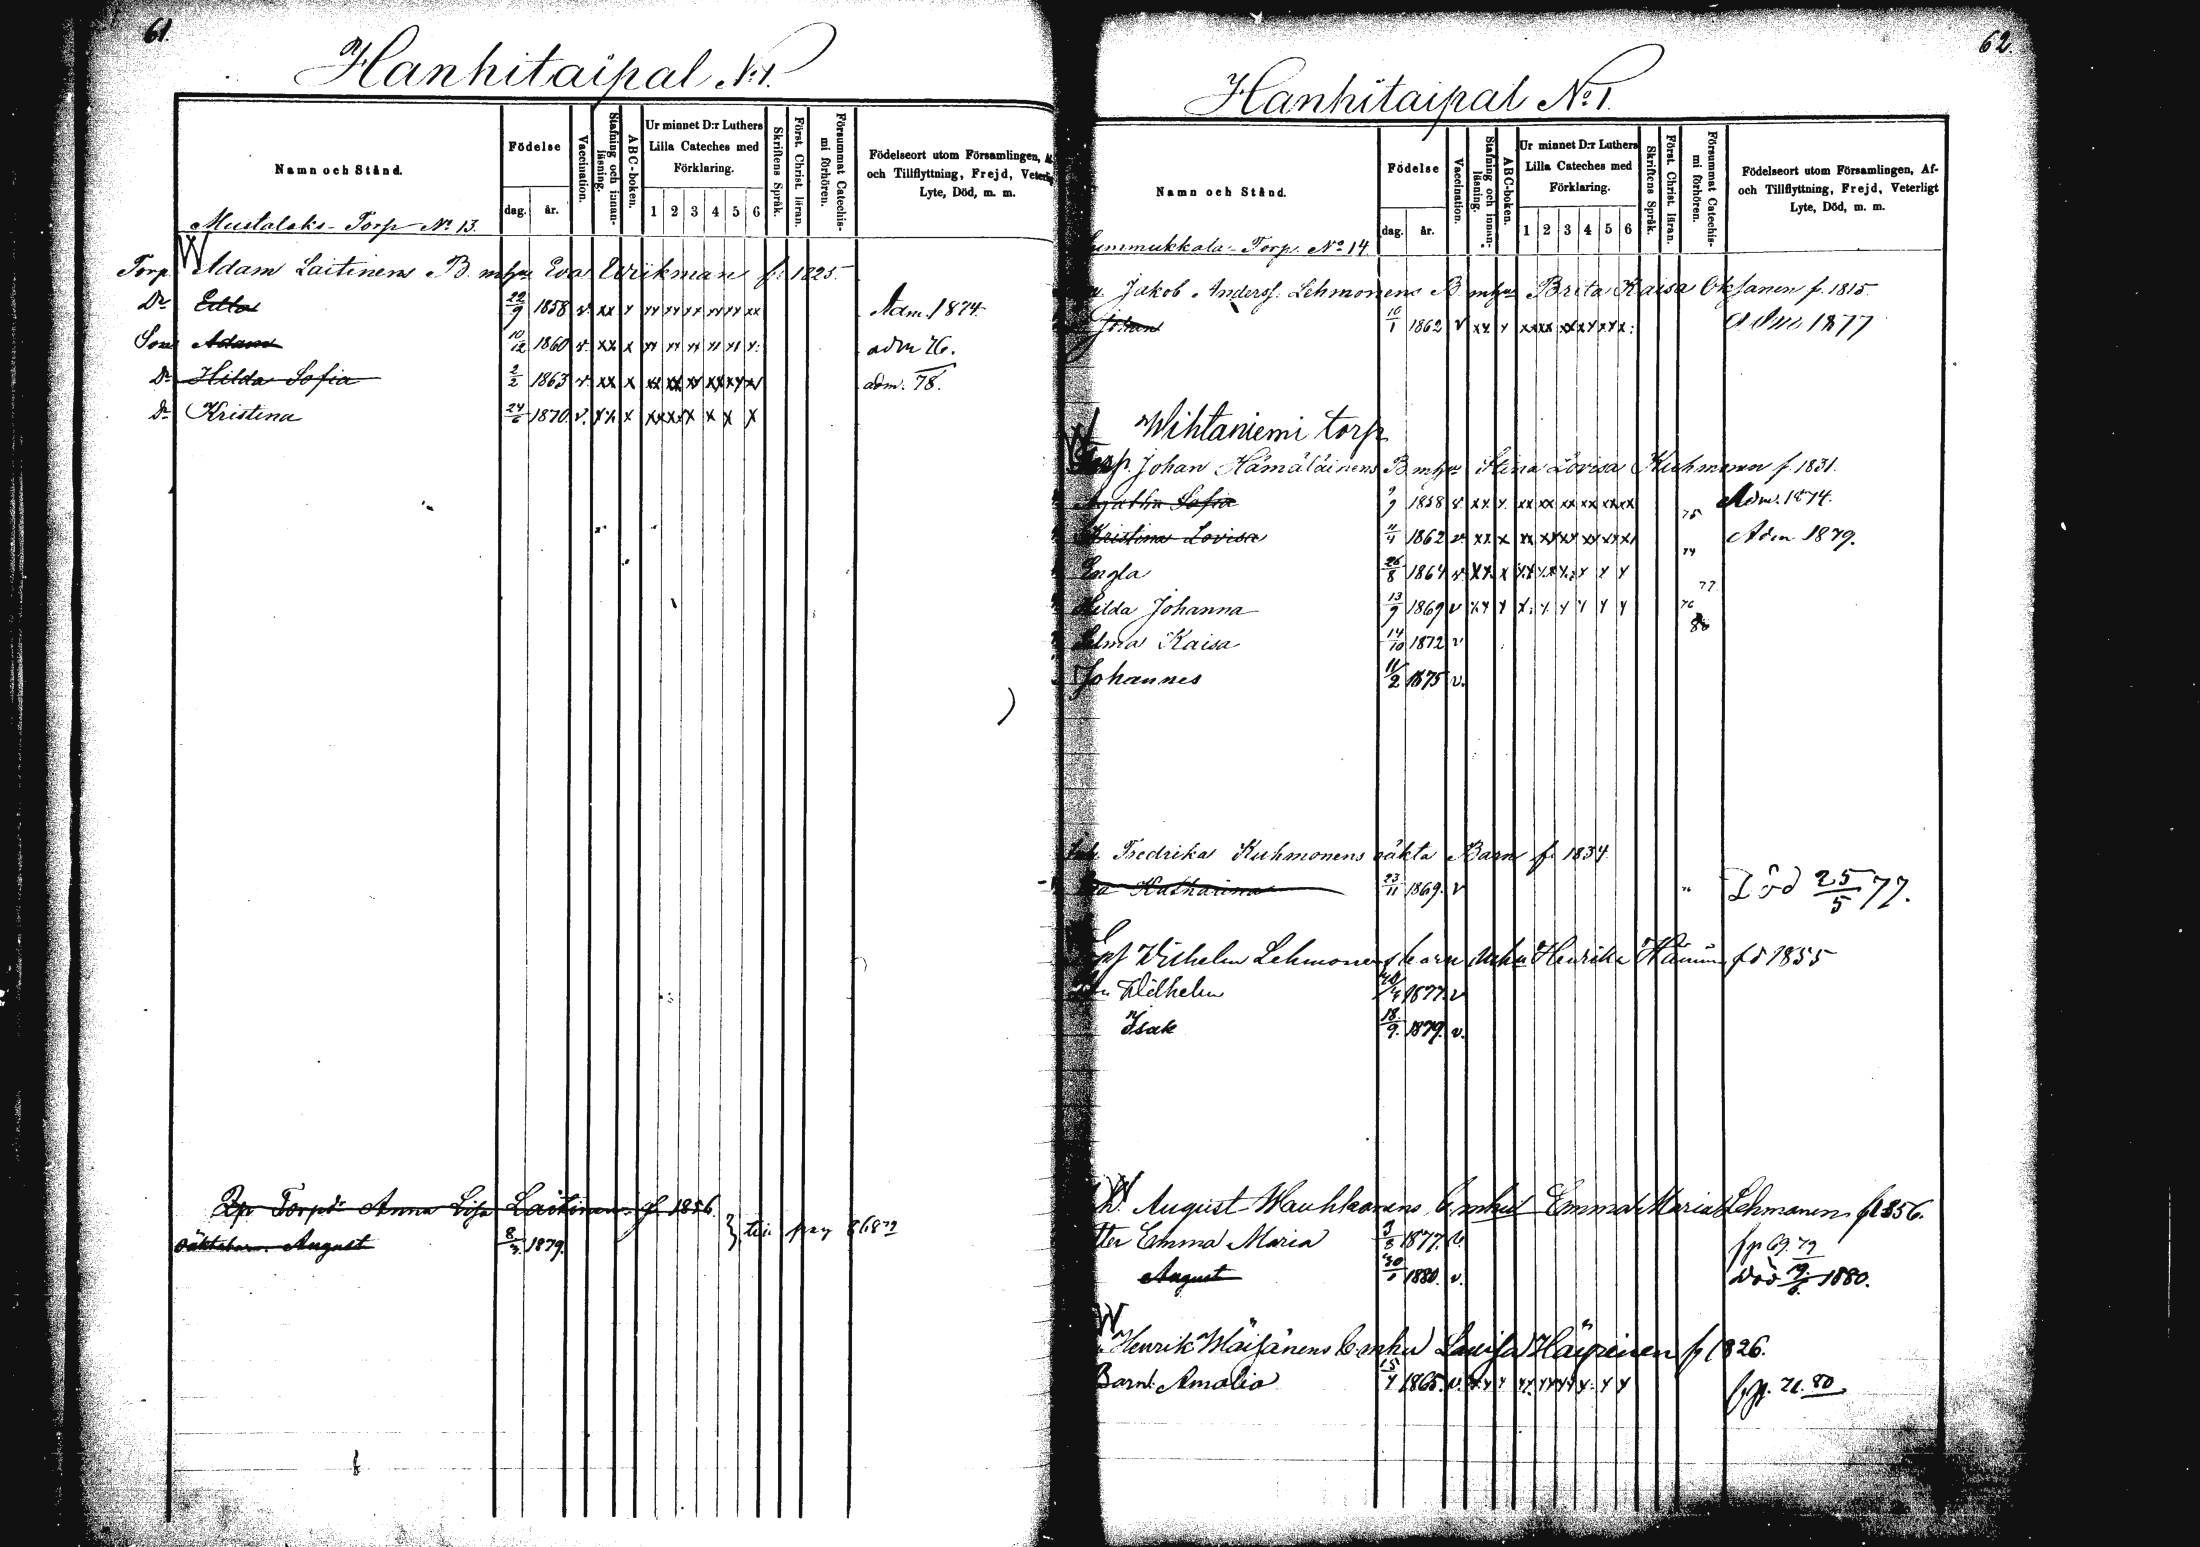 61.
Hanhitaipal N:1.
Namn och Stånd.
Födelse
dag. år.
Vaccination.
Stafning och innan-läsning.
ABC-boken.
Ur minnet D:r Luthers Lilla Cateches med Förklaring.
1 2 3 4 5 6
Skriftens Språk.
Först. Christ. läran.
Försummat Catechis-mi förhören.
Födelseort utom Församlingen,
och Tillflyttning, Frejd,
Lyte, Död, m. m.
Mustalaks-Torp No 13.
Torp. Adam Laitinens B. mhu Eva Wrikman f. 1825.
Dr Edla 22/9 1858 v xx x xx xx xx xx xx xx Adm. 1874.
Son Adam 10/12 1860 v xx x adm 76.
Dr Hilda Sofia 2/2 1863 v xx x adm. 78.
Dr Kristina 24/6 1870 v. xx x
Torpdr Anna Lisa Laitinen f 1856.
oäkta barn. August 1879. } till pag 868
62.
Hanhitaipal No 1.
Namn och Stånd.
Födelse
dag. år.
Vaccination.
Stafning och innan-läsning.
ABC-boken.
Ur minnet D:r Luthers Lilla Cateches med Förklaring.
1 2 3 4 5 6
Skriftens Språk.
Först. Christ. läran.
Försummat Catechis-mi förhören.
Födelseort utom Församlingen, Af-
och Tillflyttning, Frejd, Veterligt
Lyte, Död, m. m.
Torp. No 14
Jakob Anderss. Lehmonens B mhu Brita Kaisa Oksanen f. 1815.
Johan 10/1 1862 v xx x Adm 1877
Wihtaniemi torp
Torp. Johan Hämäläinens B mhu Stina Lovisa Kuhmonen f. 1831.
Agatha Sofia 9/9 1858 v. xx x 75 Adm. 1874.
Kristina Lovisa 11/4 1862 v xx x 74 Adm 1879.
Engla 26/8 1864 v xx x 77
Hilda Johanna 13/9 1869 v xx x 76
80
Selma Kaisa 14/10 1872 v
Johannes 11/2 1875 v.
Fredrika Kuhmonens oäkta Barn f. 1834
Katharina 23/11 1869. v Död 25/5 77.
Wilhelm Lehmonens barn mhu Henrika f. 1855
Wilhelm 1877. v
Isak 18/9. 1879. v.
W
August Wauhkonens b. mhu Emma Maria Lehmonen f 1856.
Emma Maria 3/3 1877. v. fp 69. 79
August 1880. v. Död 1880.
W
Henrik Wäisänens b. mhu Lovisa Häyrinen f 1826.
Barn: Amalia 15/4 1865. v.